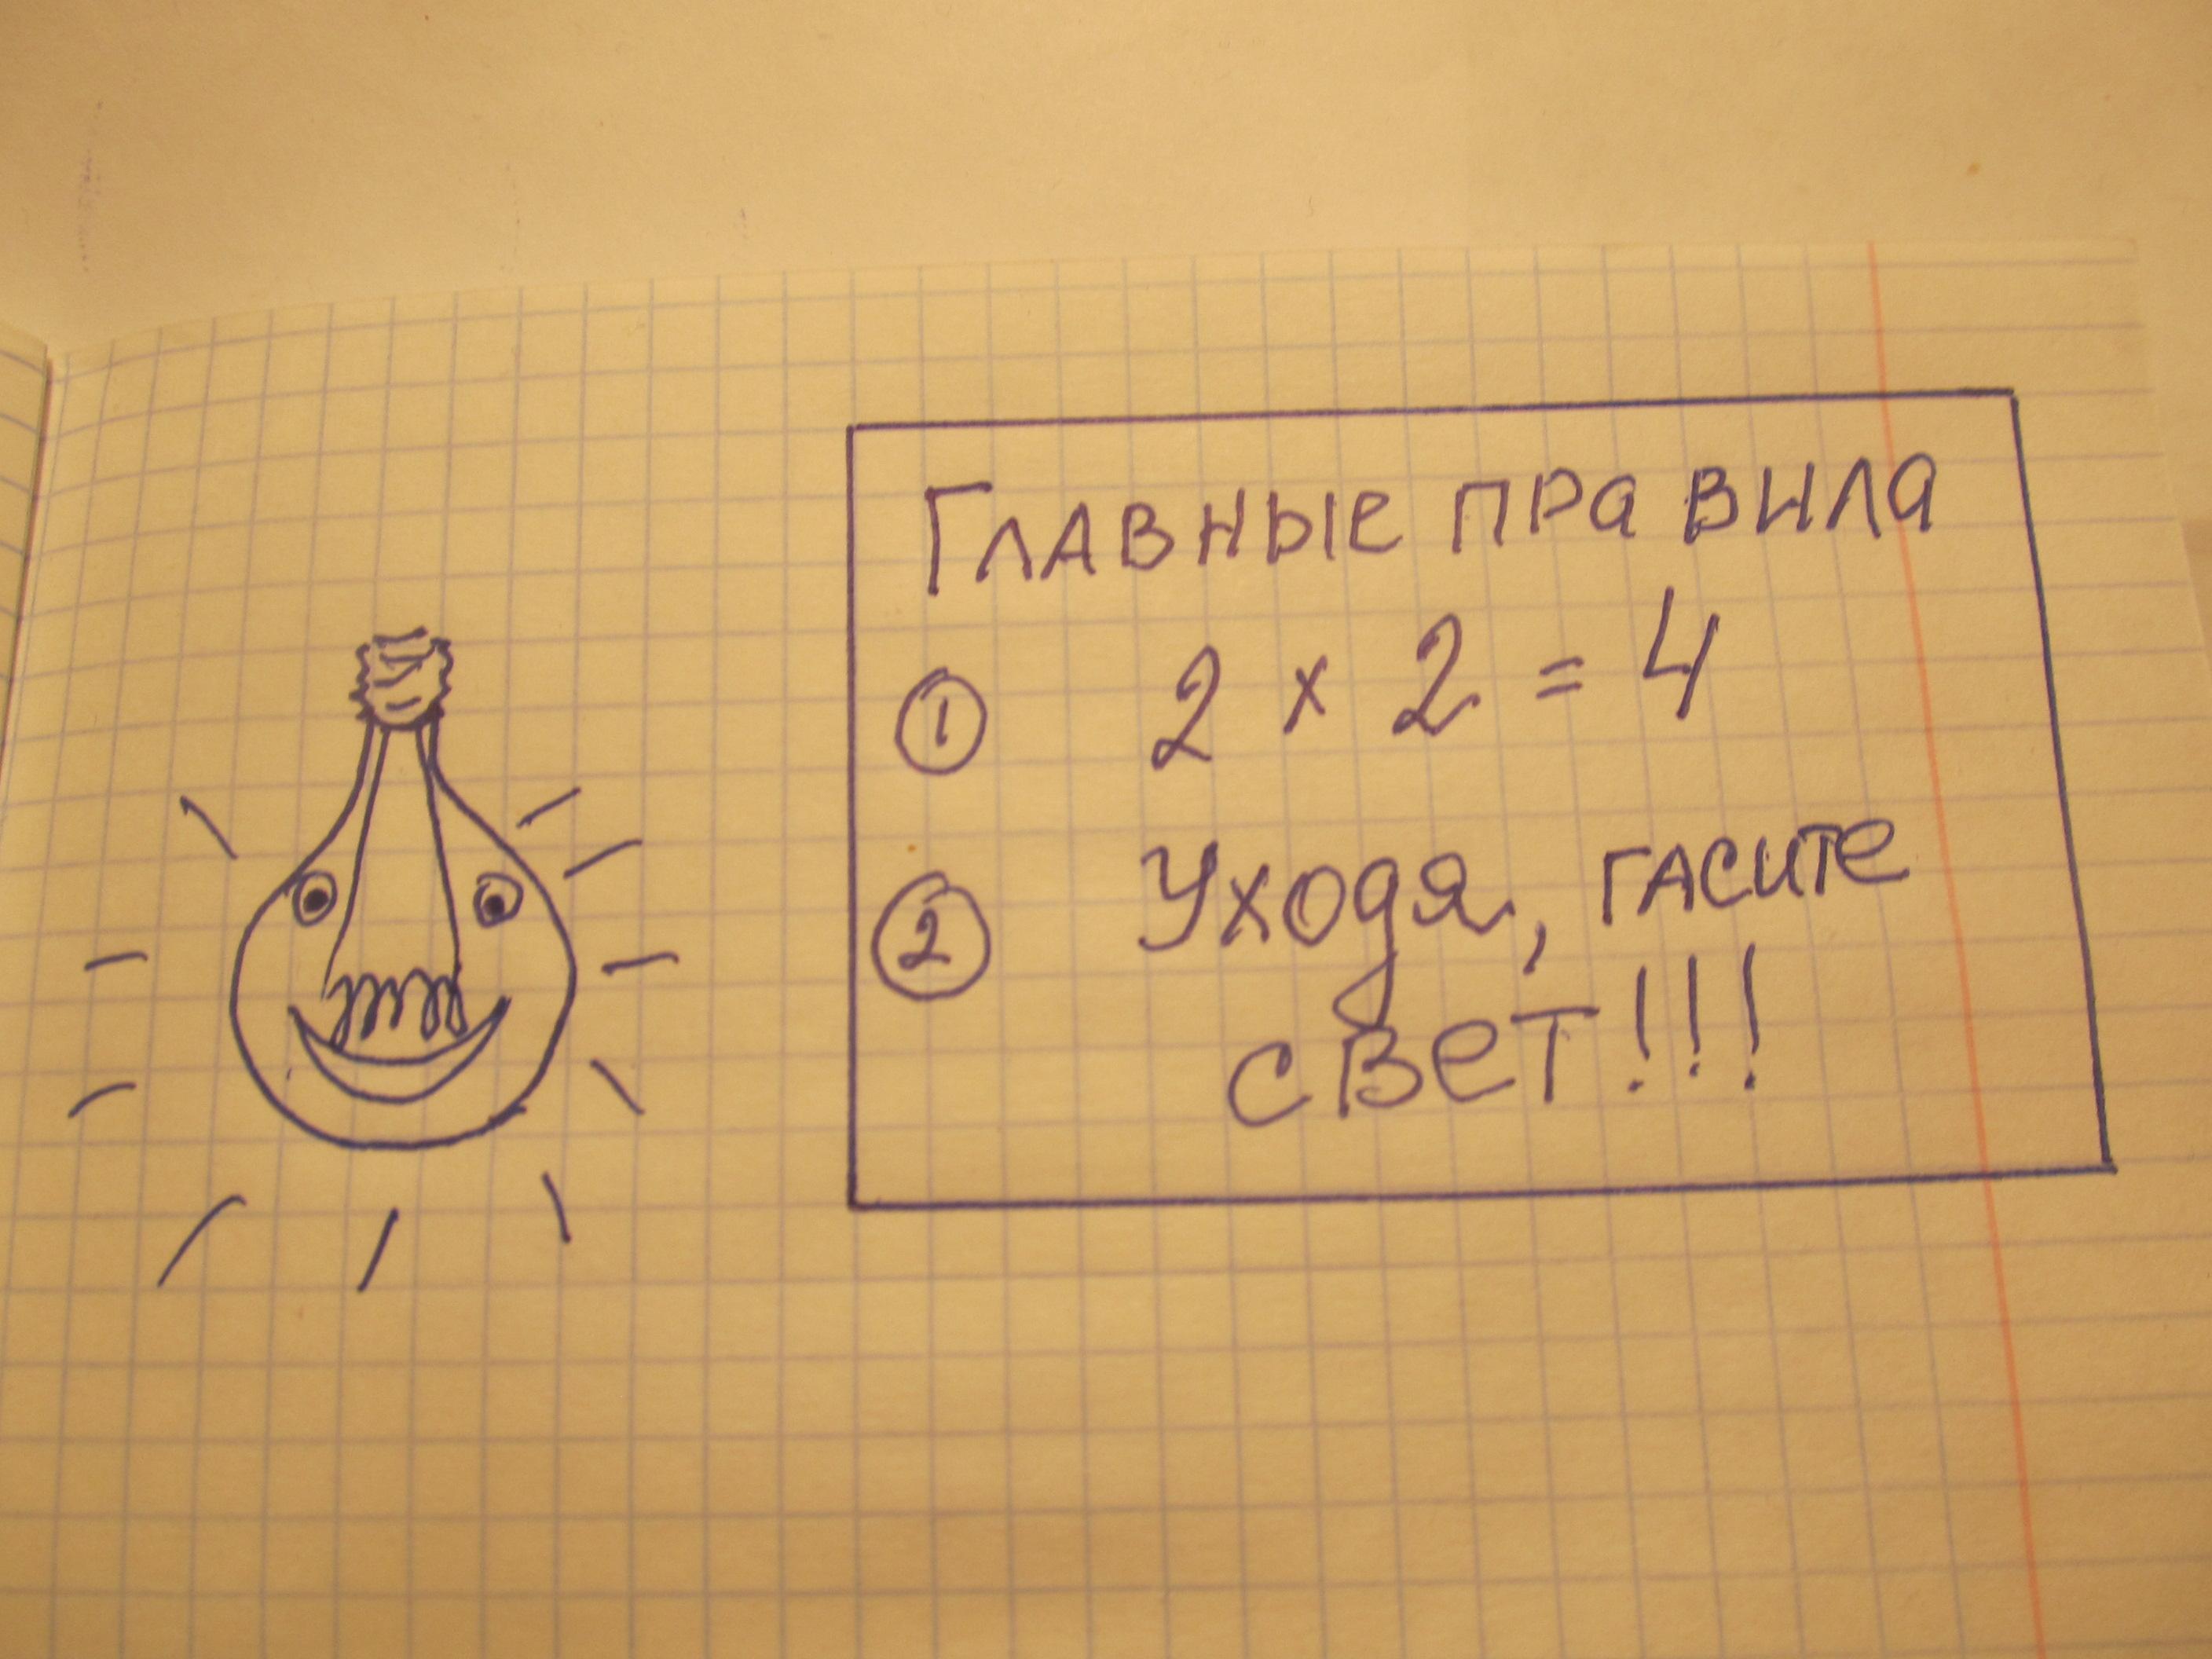 Главные правила
1 2 x 2 = 4
2 Уходя, гасите
свет!!!